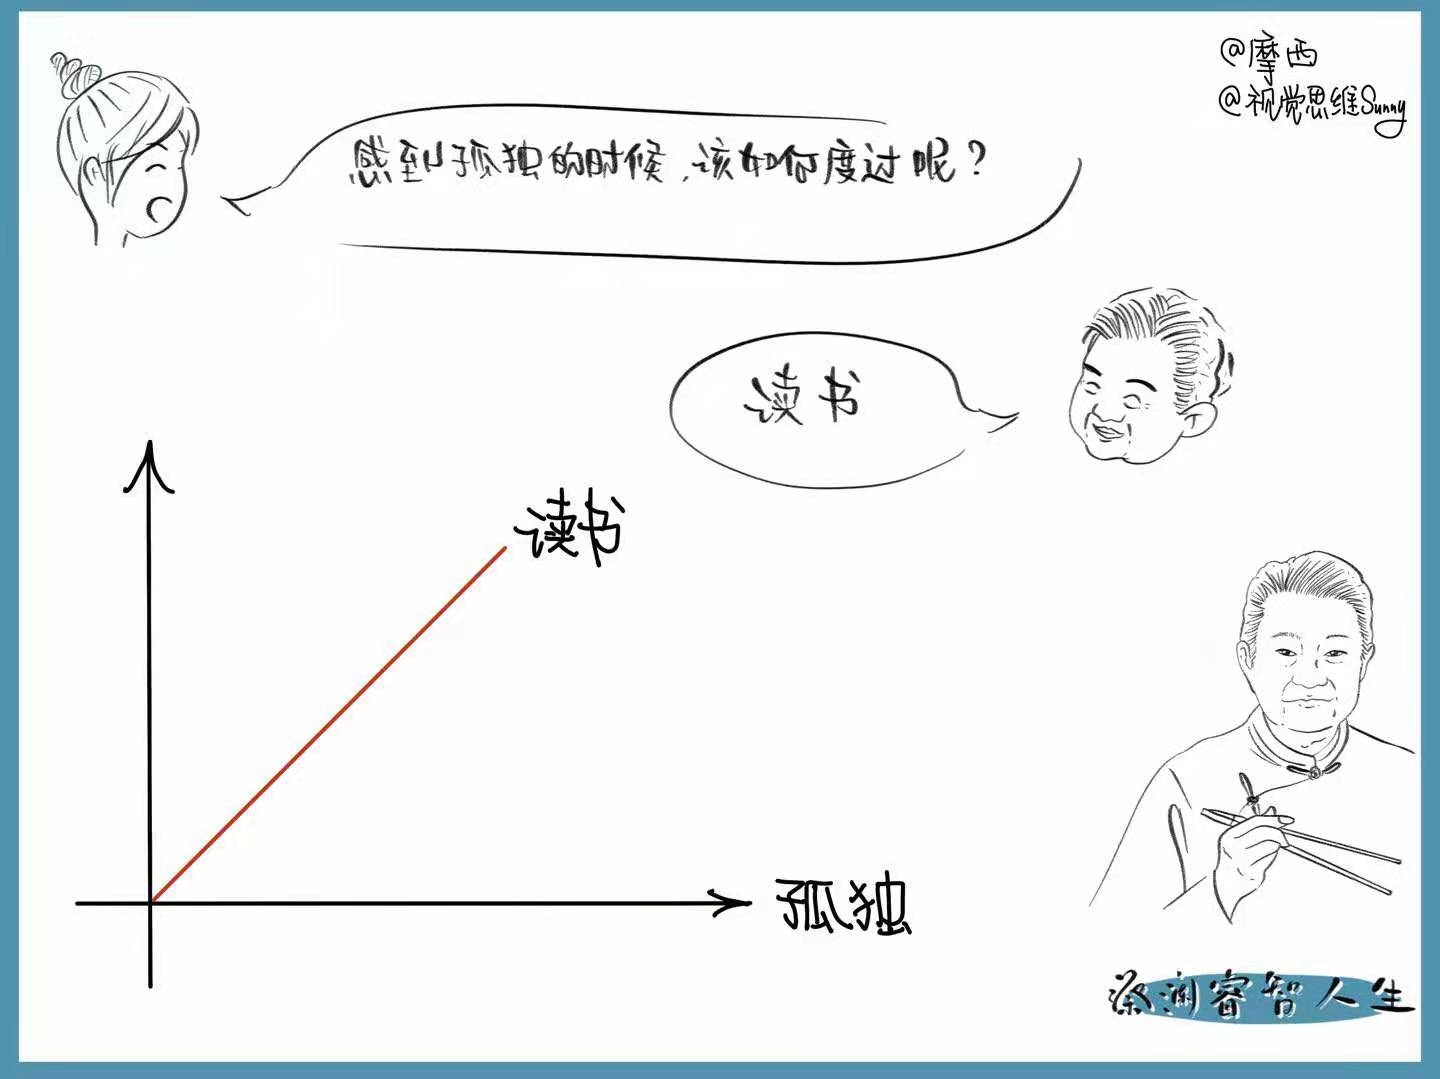 @摩西
@视觉思维Sunny
感到孤独的时候,该如何度过呢?
读书
读书
孤独
蔡澜睿智人生